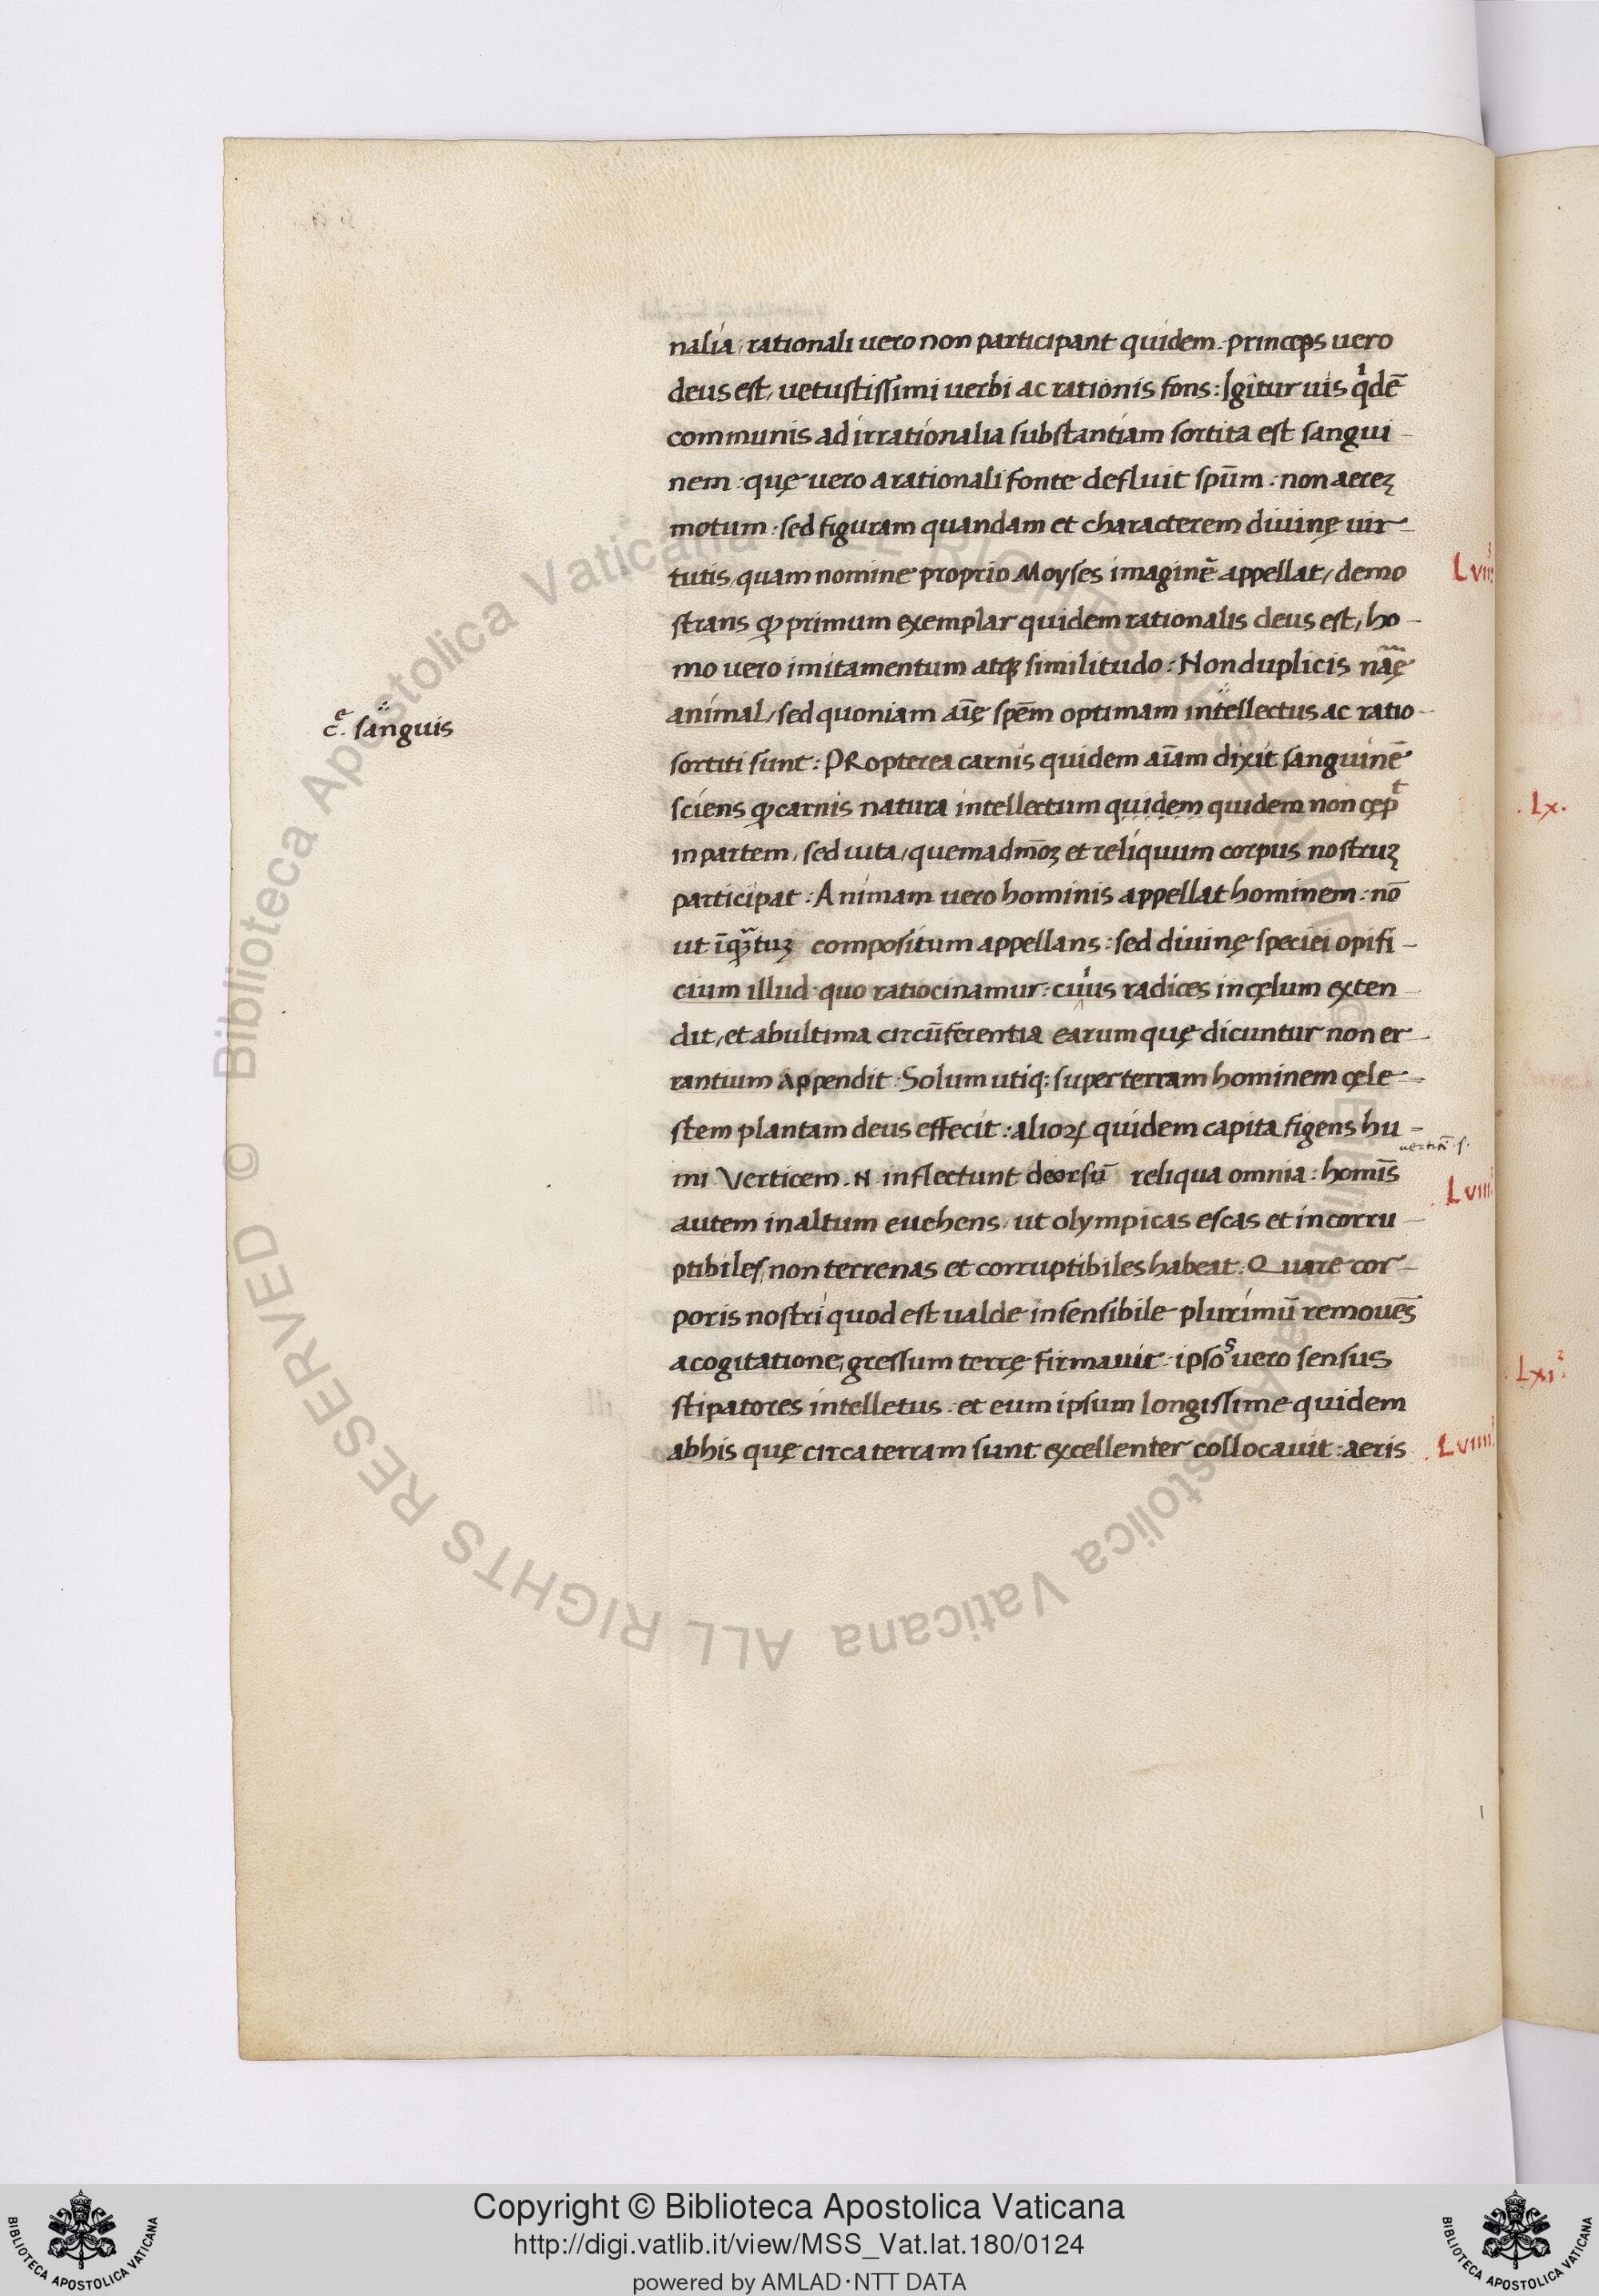 nalia, rationali uero non participant quidem. princeps uero
deus est, uetustissimi uerbi ac rationis fons: Igitur uis qͥdē
communis ad irrationalia substantiam sortita est sangui-
nem: quę uero a rationali fonte defluit spūm: non aereꝫ
motum: sed figuram quandam et characterem diuinę uir-
tutis, quam nomine proprio Moyses imaginē appellat, demo
Lviiȷ
strans ꝙ primum exemplar quidem rationalis deus est, ho-
mo uero imitamentum atqꝫ similitudo: Non duplicis nāę
animal, sed quoniam aīę spēm optimam intellectus ac ratio-
c̄ͤ. sanguis
sortiti sunt: PRopterea carnis quidem aīam dixit sanguinē
sciens ꝙ carnis natura intellectum quidem quidem non cępͭ
.Lx.
in partem, sed uita, quemadmōꝫ et reliquum corpus nostruꝫ
participat: Animam uero hominis appellat hominem: nō
ut compositum appellans: sed diuinę speciei opifi-
cium illud quo ratiocinamur: cuius radices in cęlum exten-
dit, et ab ultima circūferentia earum quę dicuntur non er-
rantium appendit: Solum utiq: super terram hominem cęle-
stem plantam deus effecit: alioꝝ quidem capita figens hu-
mi Verticem. N. inflectunt deorsū reliqua omnia: homīs
.Lviiii
autem in altum euehens, ut olympicas escas et incorru-
ptibiles, non terrenas et corruptibiles habeat. Quare cor-
poris nostri quod est ualde insensibile plurimū remouēs
a cogitatione, gressum terrę firmauit: ipsoˢ uero sensus
.Lxi.
stipatores intelletus. et eum ipsum longissime quidem
ab his quę circa terram sunt excellenter collocauit: aeris
.Lviiii.
© Biblioteca Apostolica Vaticana ALL RIGHTS RESERVED © Biblioteca Apostolica Vaticana ALL RIGHTS RESERVED
Copyright © Biblioteca Apostolica Vaticana
http://digi.vatlib.it/view/MSS_Vat.lat.180/0124
powered by AMLAD·NTT DATA
BIBLIOTECA APOSTOLICA VATICANA
BIBLIOTECA APOSTOLICA VATICANA